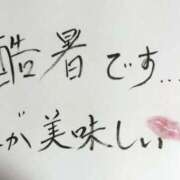 酷暑です…
が美味しい